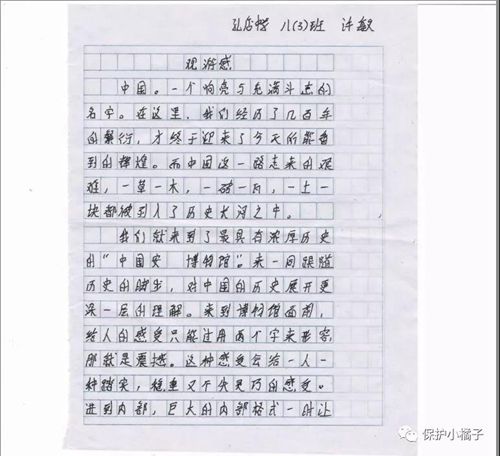 孔店学 八(3)班 许敏
观游感
中国。一个响亮与充满斗志的
名字。在这里,我们经历了几百年
的繁衍,才终于迎来了今天所能看
到的辉煌。而中国这一路走来的艰
难,一草一木,一砖一瓦,一土一
块都被刻入了历史大河之中。
我们就来到了最具有浓厚历史
的“中国安 博物馆”。来一同跟随
历史的脚步,对中国的历史展开更
深一层的理解。来到博物馆面前,
给人的感受只能过用两个字来形容,
那就是震撼。这种感受会给一人一
种踏实,稳重又不失灵巧的感受。
进到内部,巨大的内部格式一时让
保护小橘子